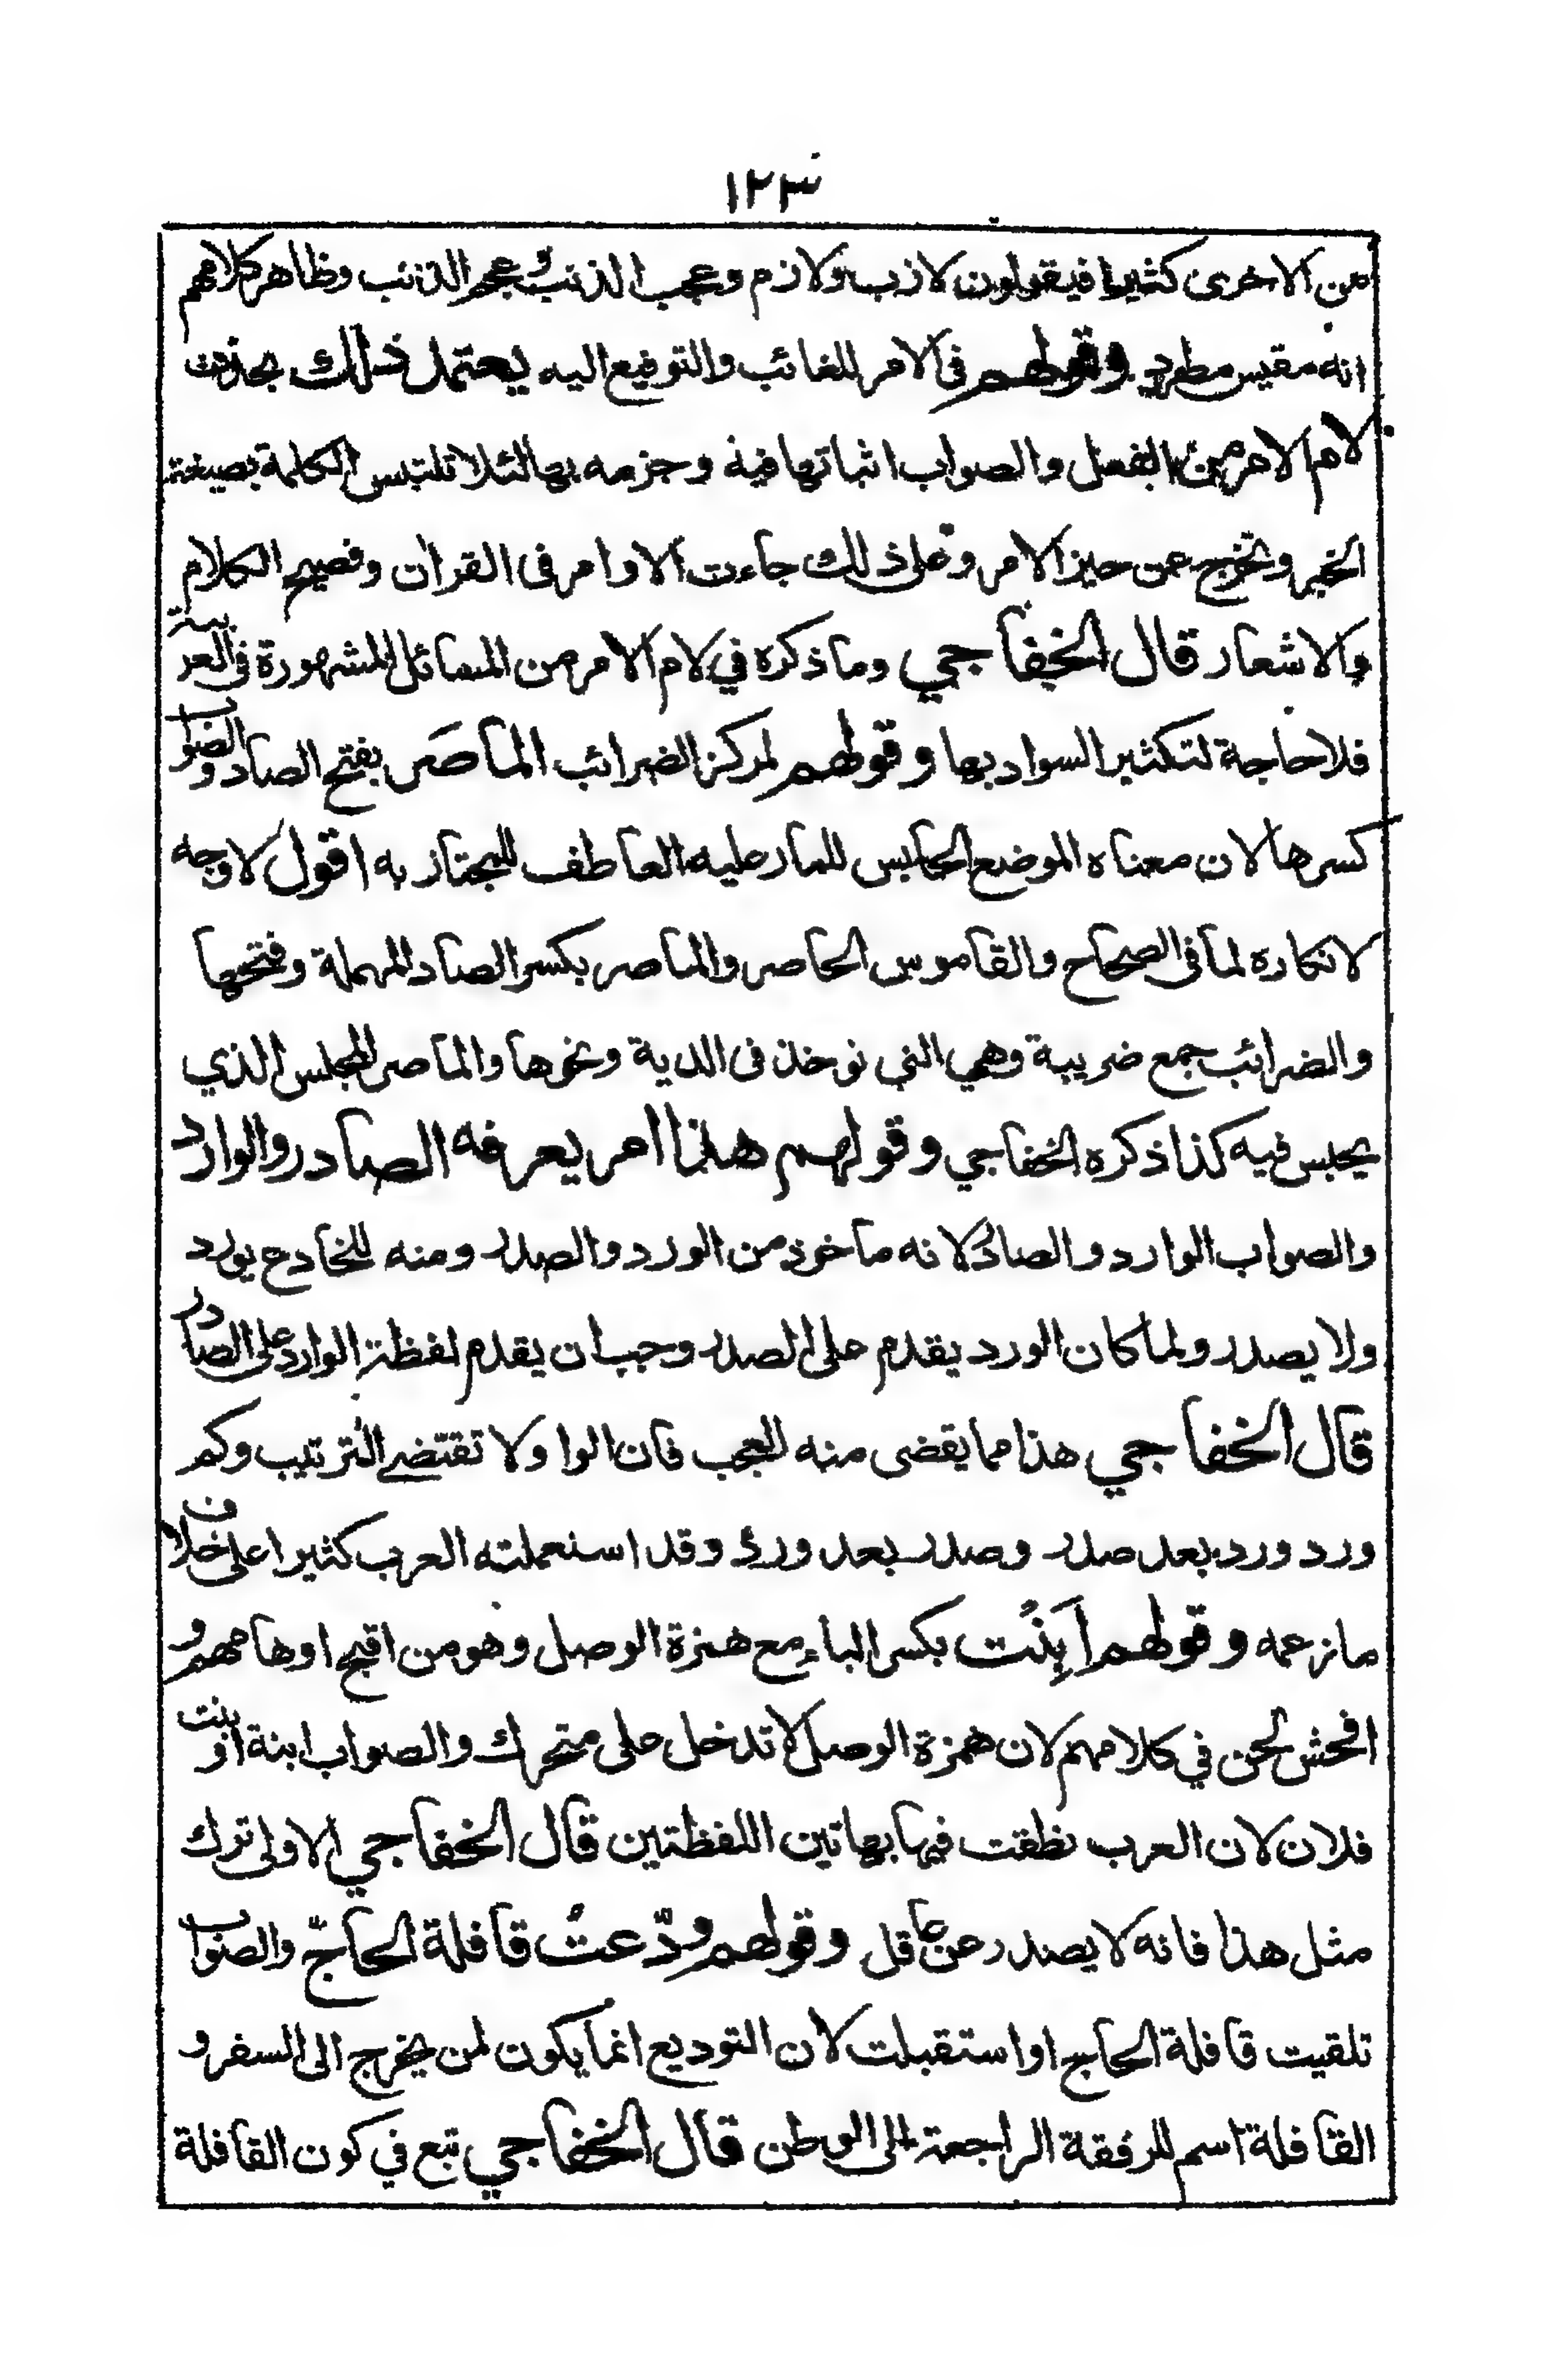 ١٢٣
من الاخرى كثيرا فيقولون لازب ولازم وعجب الذنب وعجم الذنب وظاهر كلامهم
انه مقيس مطرد وقولهم فى الامر للغائب والتوقيع اليه يعتمل ذلك بحذف
لام الامر من الفعل والصواب اثباتها فيه وجزمه بها لئلا تلتبس الكلمة بصيغة
الخبر وتخرج عن حيز الامر وعلى ذلك جاءت الاوامر فى القرآن وفصيح الكلام
والاشعار قال الخفاجي وما ذكره في لام الامر من المسائل المشهورة فى العربية
فلا حاجة لتكثير السواد بها وقولهم لمركز الضرائب الماصَر بفتح الصاد والصواب
كسرها لان معناه الموضع الحابس للمار عليه العاطف للمجتاز به اقول لا وجه
لانكاره لما فى الصحاح والقاموس الحاصر والماصر بكسر الصاد المهملة وفتحها
والضرائب جمع ضريبة وهي التي توخذ فى الدية ونحوها والماصر المجلس الذي
يحبس فيه كذا ذكره الخفاجي وقولهم هذا امر يعرفه الصادر والوارد
والصواب الوارد والصادر لانه ماخوذ من الورد والصدر ومنه للخادع يورد
ولا يصدر ولما كان الورد يقدم على الصدر وجب ان يقدم لفظة الوارد على الصادر
قال الخفاجي هذا مما يقضى منه العجب فان الواو لا تقتضي الترتيب وكم
ورد ورد بعد صدر وصدر بعد ورد وقد استعملته العرب كثيرا على خلاف
ما زعمه وقولهم اَبِنْت بكسر الباء مع همزة الوصل وهو من اقبح اوهامهم و
افحش لحن في كلامهم لان همزة الوصل لا تدخل على متحرك والصواب ابنة او بنت
فلان لان العرب نطقت فيها بهاتين اللفظتين قال الخفاجي الاولى ترك
مثل هذا فانه لا يصدر عن عاقل وقولهم ودّعتُ قافلة الحاجّ والصواب
تلقيت قافلة الحاج او استقبلت لان التوديع انما يكون لمن يخرج الى السفر و
القافلة اسم للرفقة الراجعة الى الوطن قال الخفاجي تبع في كون القافلة